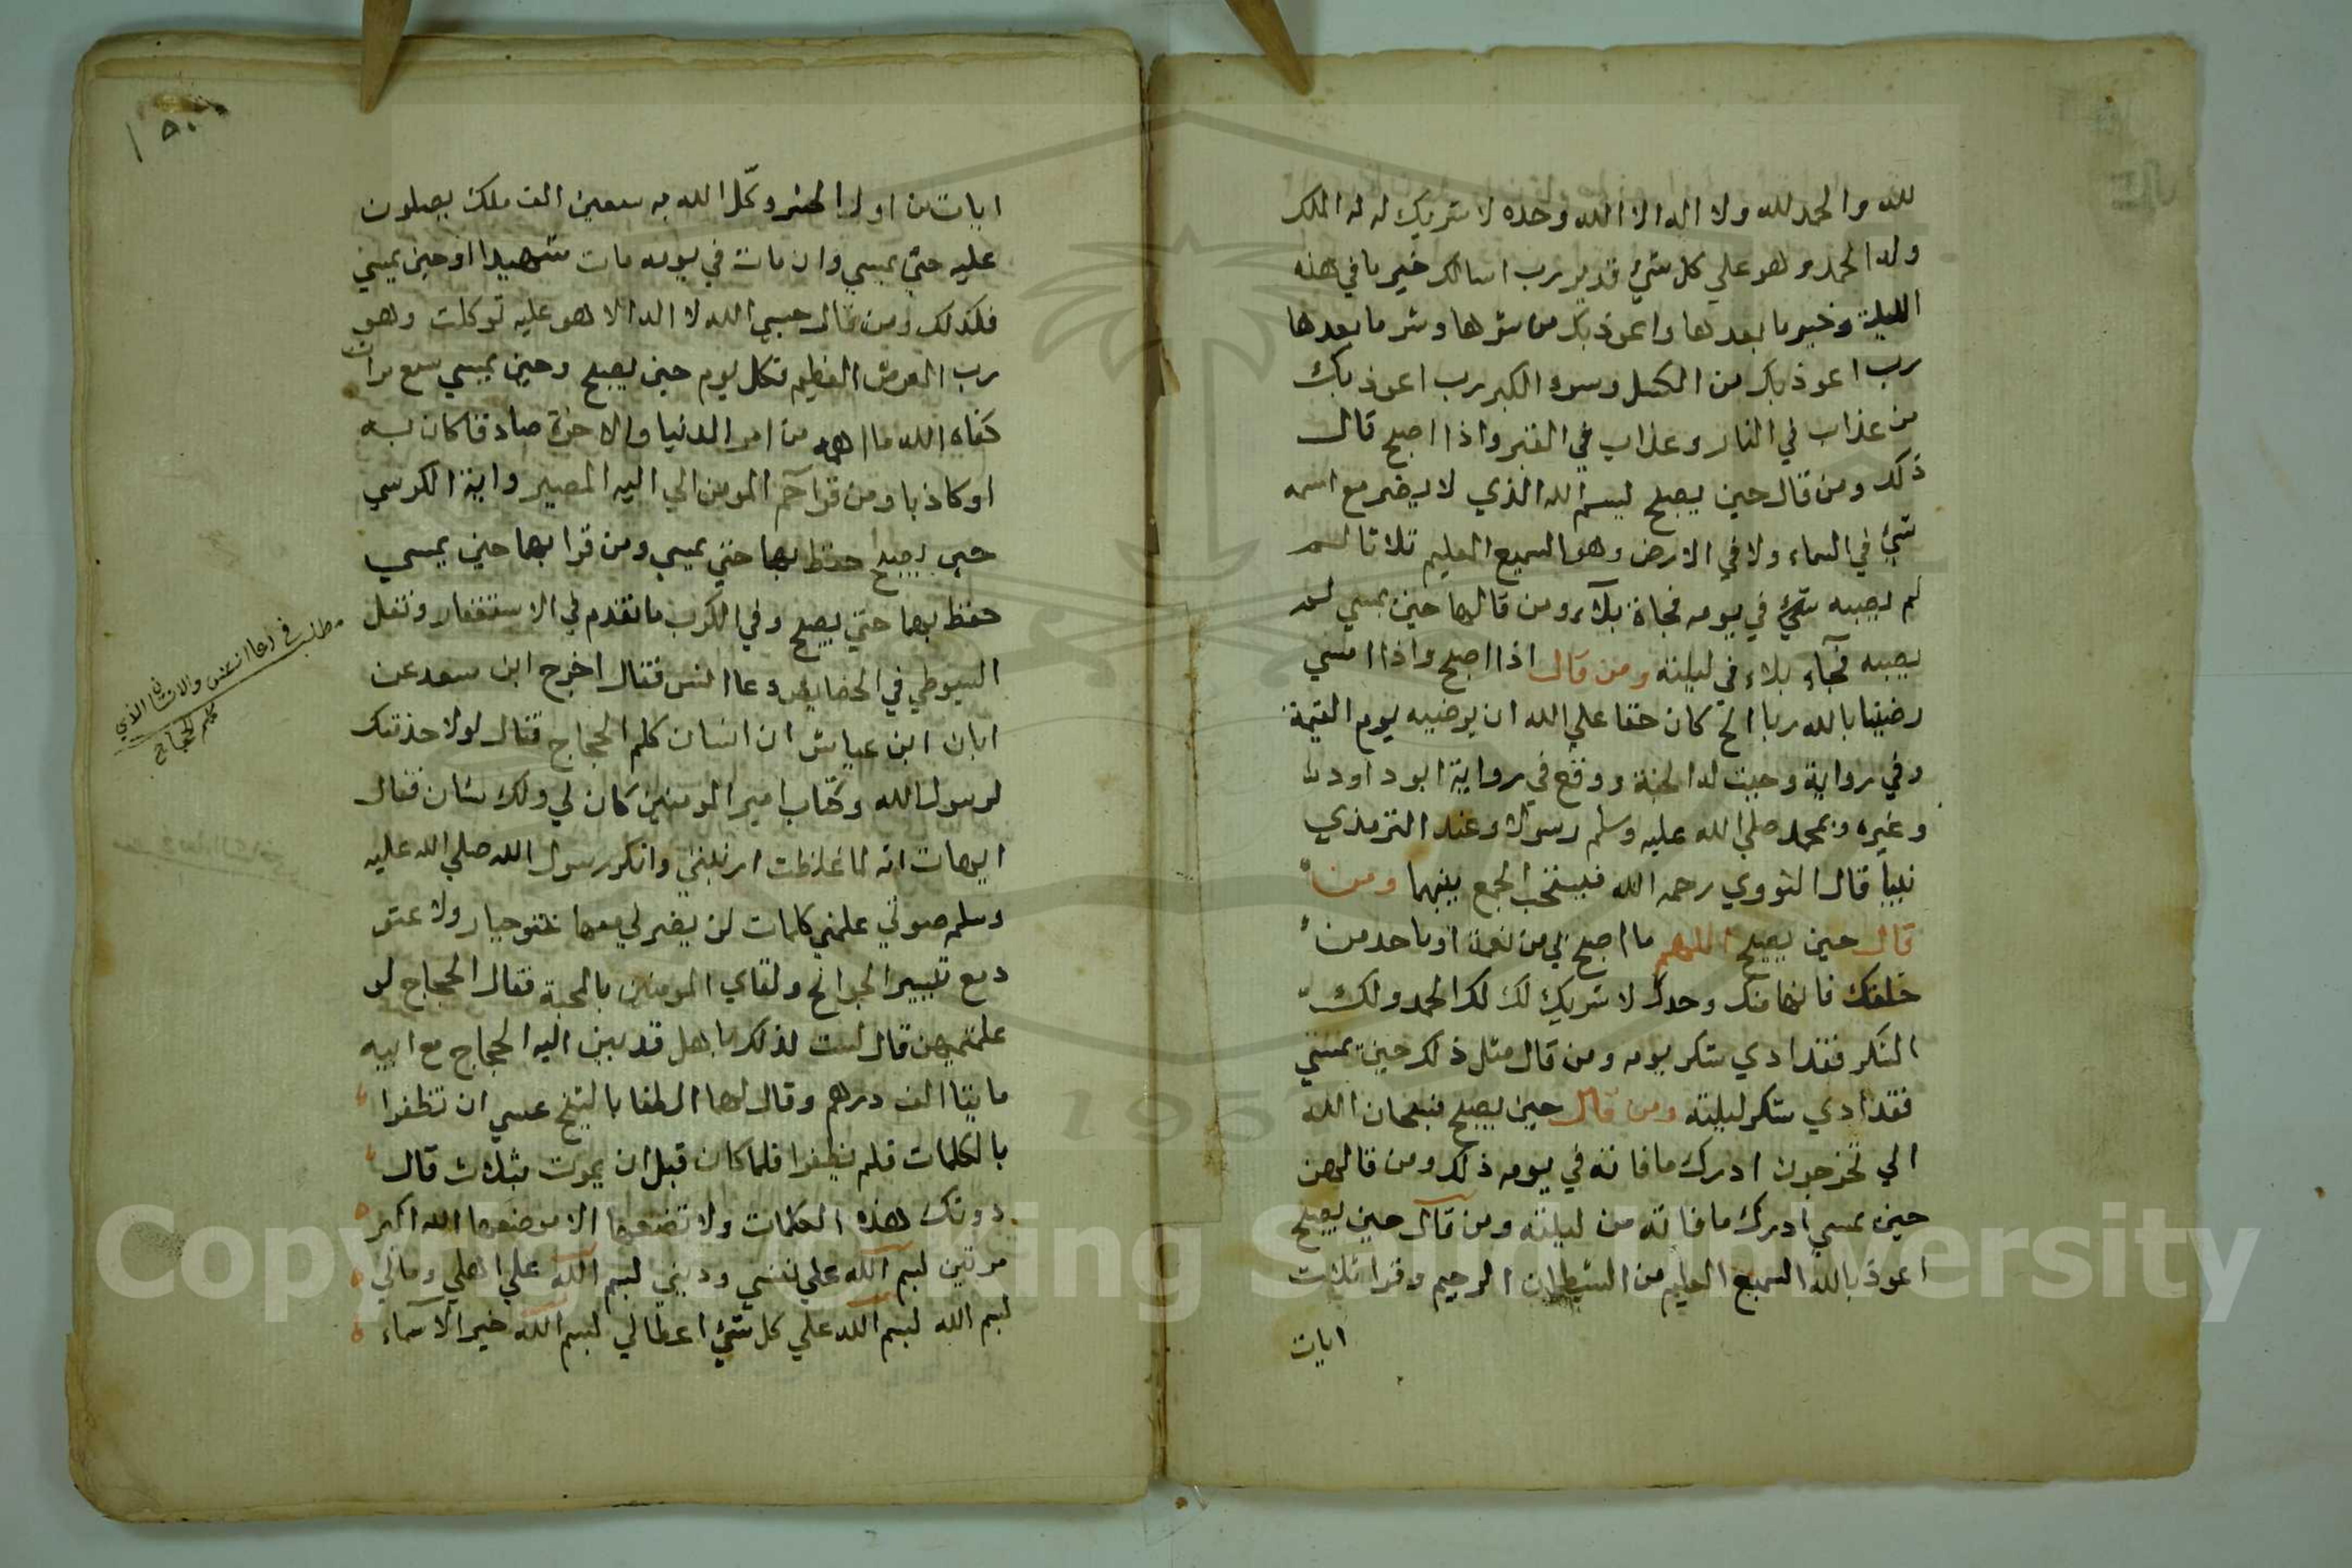 لله والحمد لله ولا اله الا الله وحده لا شريك له له الملك
وله الحمد وهو علي كل شيء قدير رب اسالك خير ما في هذه
الليلة وخير ما بعدها واعوذ بك من شرها وشر ما بعدها
رب اعوذ بك من الكسل وسوء الكبر رب اعوذ بك
من عذاب في النار وعذاب في القبر واذا اصبح قال
ذلك ومن قال حين يصبح بسم الله الذي لا يضر مع اسمه
شيء في السماء ولا في الارض وهو السميع العليم ثلاثا
لم يصيبه شيء في يومه فجاة بلاء ومن قالها حين يمسي لم
يصيبه فجآء بلاء في ليلته ومن قال اذا اصبح واذا امسي
رضينا بالله ربا الخ كان حقا علي الله ان يرضيه يوم القيمة
وفي رواية وجبت له الجنة ووقع في رواية ابو داود
وغيره وبمحمد صلي الله عليه وسلم رسولا وعند الترمذي
نبيا قال النووي رحمه الله فيستحب الجمع بينهما ومن
قال حين يصبح اللهم ما اصبح بي من نعمة او باحد من
خلقك فانها منك وحدك لا شريك لك لك الحمد ولك
الشكر فقد ادي شكر يومه ومن قال مثل ذلك حين يمسي
فقد ادي شكر ليلته ومن قال حين يصبح فسبحان الله
الي تخرجون ادرك ما فاته في يومه ذلك ومن قالهن
حين يمسي ادرك ما فاته من ليلته ومن قال حين يصبح
اعوذ بالله السميع العليم من الشيطان الرجيم وقرا ثلاث
ايات
ايات من اول الحشر وكّل الله به سبعين الف ملك يصلون
عليه حتي يمسي وان مات في يومه مات شهيدا او حين يمسي
فكذلك ومن قال حسبي الله لا اله الا هو عليه توكلت وهو
رب العرش العظيم كل يوم حين يصبح وحين يمسي سبع مرات
كفاه الله ما اهمه من امر الدنيا والاخرة صادقا كان به
او كاذبا ومن قرا حم المومن الي اليه المصير واية الكرسي
حين يصبح حفظ بهما حتي يمسي ومن قرا بهما حين يمسي
حفظ بهما حتي يصبح وفي الكرب ما تقدم في الاستغفار ونقل
السيوطي في الخصايص دعا انس فقال اخرج ابن سعد عن
ابان ابن عياش ان انسان كلم الحجاج فقال لولا خدمتك
لرسول الله وكتاب امير المومنين كان لي ولك شان فقال
ايهات انه لما غلظت ارنبتي وانكر رسول الله صلي الله عليه
وسلم صوتي علمني كلمات لن يضرني معها عتو جبار ولا عتو
مع تيسير الحوائج ولقاي المومنين بالمحبة فقال الحجاج لو
علمتنيهن قال لست لذلك باهل فدس اليه الحجاج مع ابنيه
مايتا الف درهم وقال لهما الطفا بالشيخ عسي ان تظفرا
بالكلمات فلم يظفرا فلما كان قبل ان يموت بثلاث قال
دونك هذه الكلمات ولا تضعها الا موضعها الله اكبر
مرتين بسم الله علي نفسي وديني بسم الله علي اهلي ومالي
بسم الله بسم الله علي كل شيء اعطالي بسم الله خير الاسماء
مطلب في دعا انس والانسان الذي
كلم الحجاج
Copyright © King Saud University
195